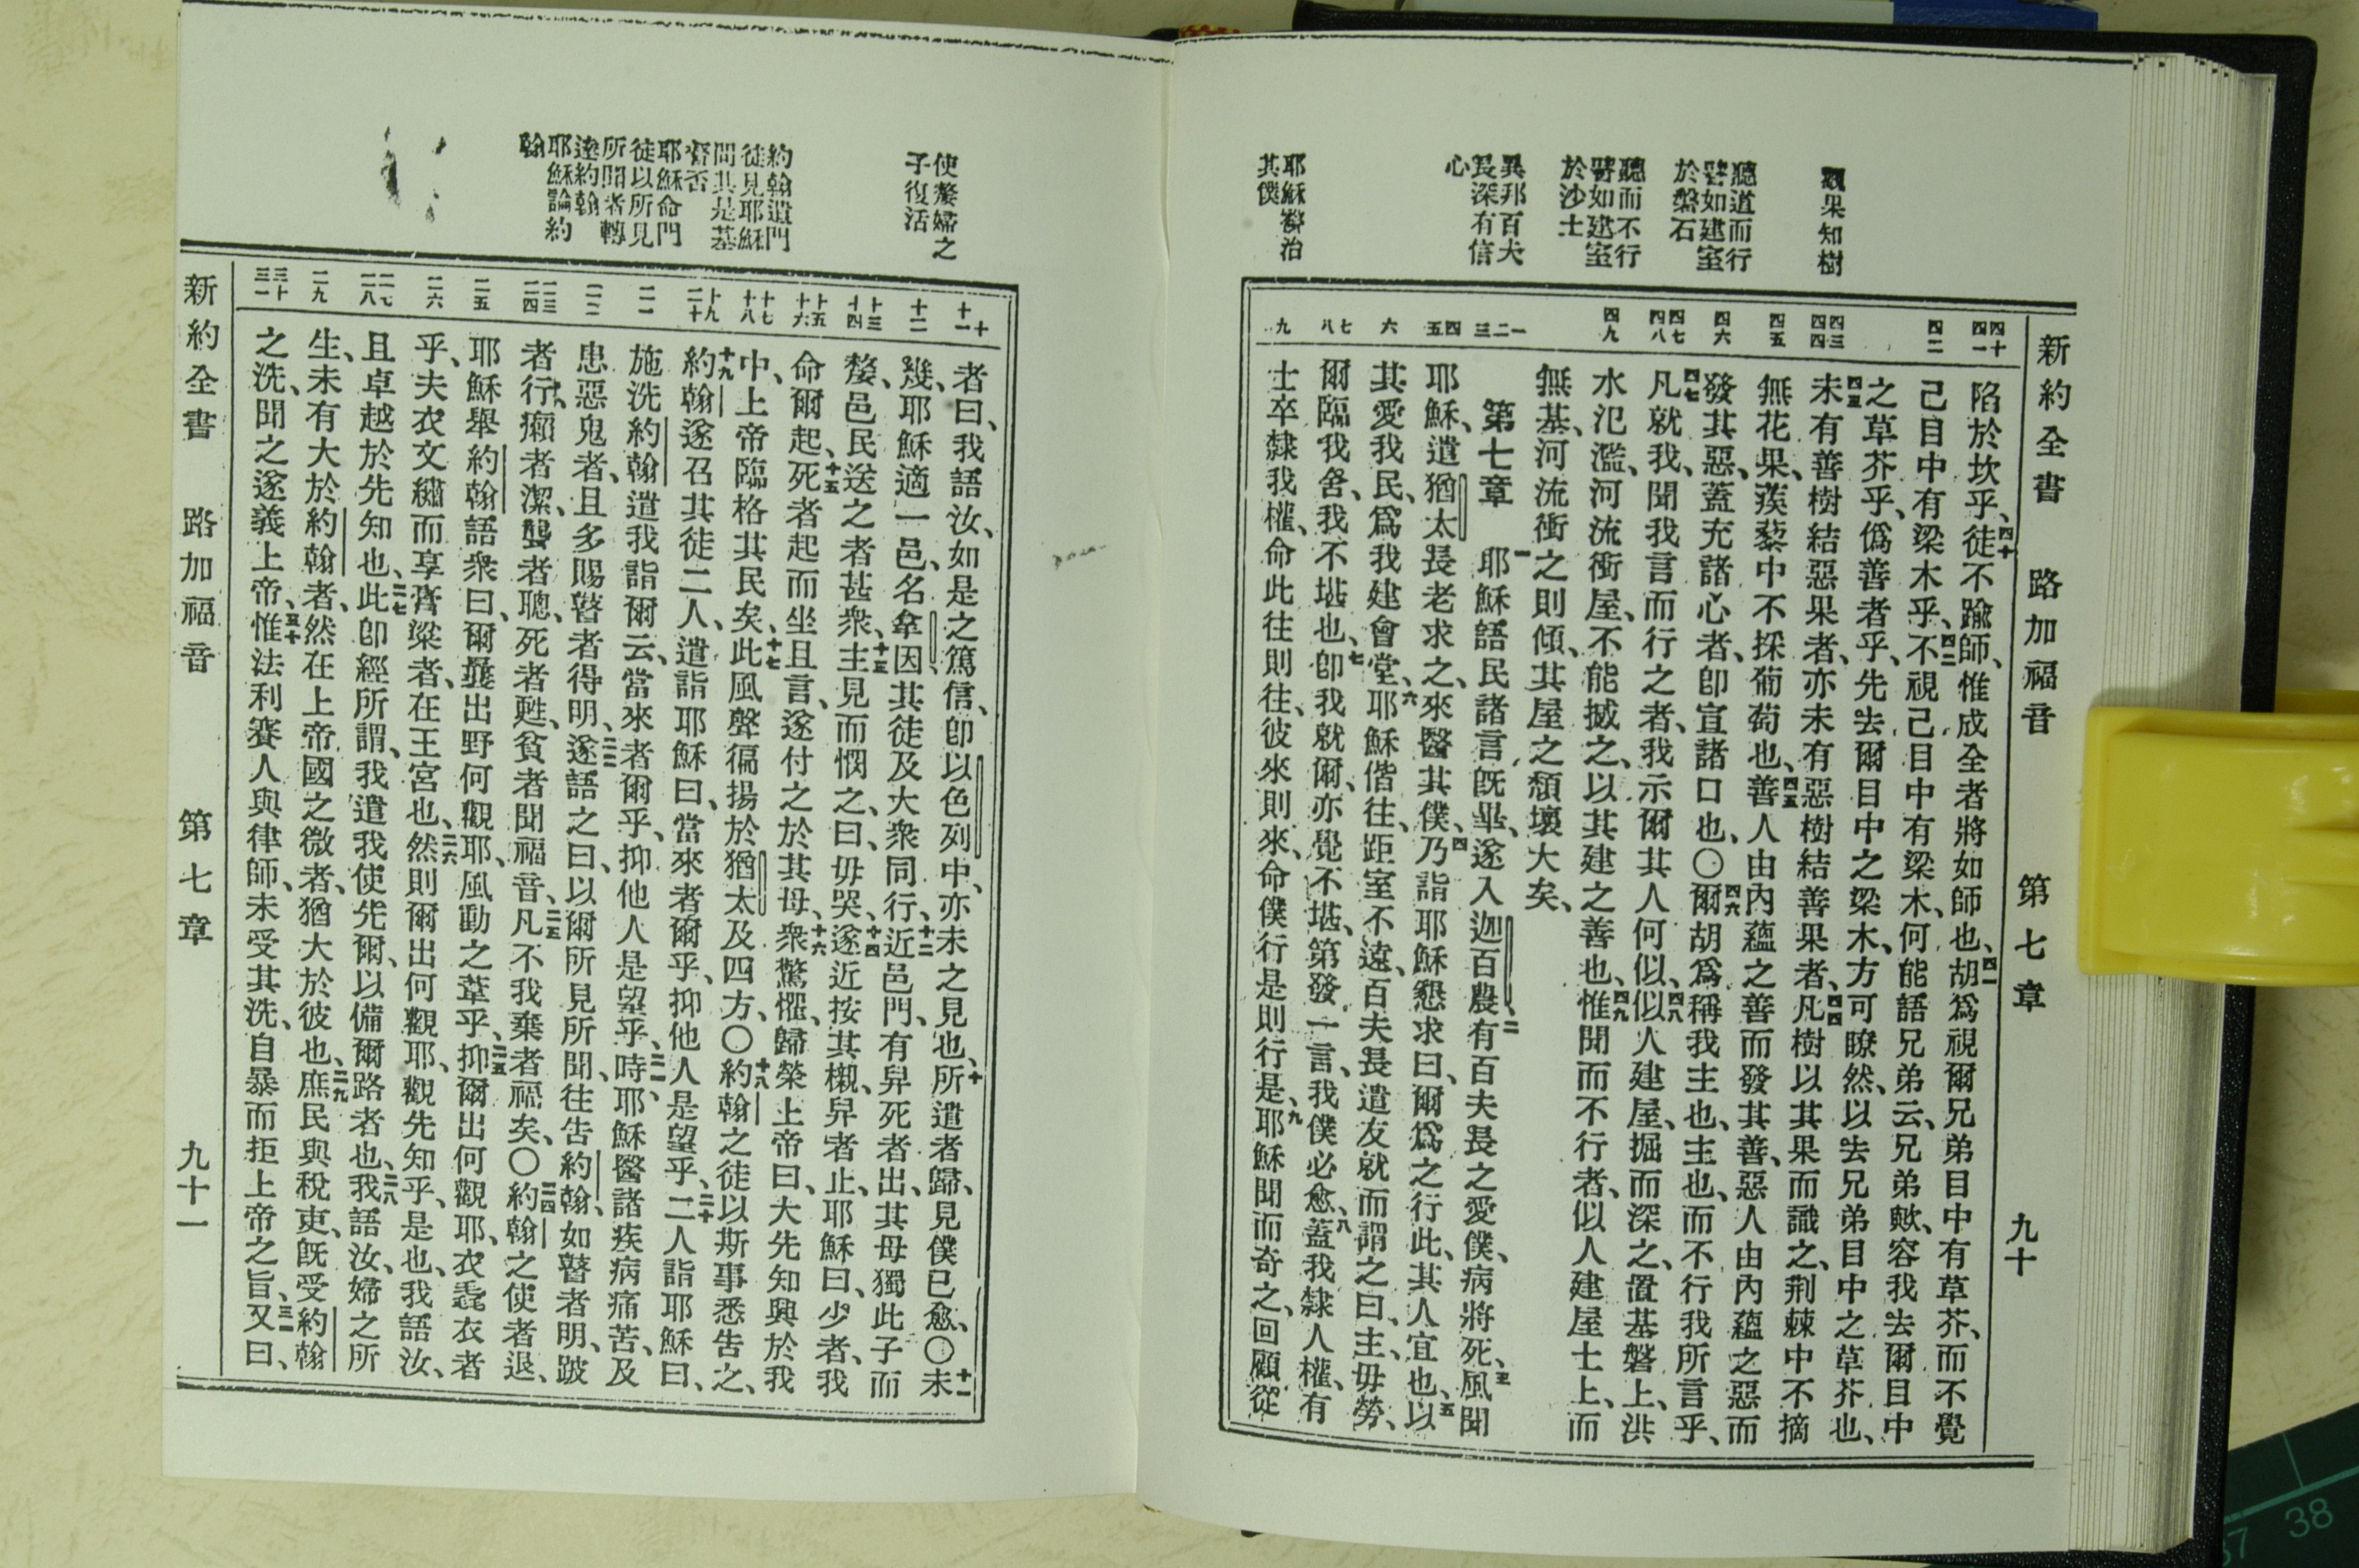 新約全書 路加福音 第七章 九十
觀果知樹
聽道而行
譬如建室
於磐石
聽而不行
譬如建室
於沙土
異邦百夫
長深有信
心
耶穌醫治
其僕
四十
四一
四二
四三
四四
四五
四六
四七
四八
四九
一
二
三
四
五
六
七
八
九
陷於坎乎、四十徒不踰師、惟成全者將如師也、四一胡爲視爾兄弟目中有草芥、而不覺
己目中有梁木乎、四二不視己目中有梁木、何能語兄弟云、兄弟歟、容我去爾目中
之草芥乎、僞善者乎、先去爾目中之梁木、方可瞭然、以去兄弟目中之草芥也、
四三未有善樹結惡果者、亦未有惡樹結善果者、四四凡樹以其果而識之、荆棘中不摘
無花果、蒺藜中不採葡萄也、四五善人由內蘊之善而發其善、惡人由內蘊之惡而
發其惡、蓋充諸心者、卽宣諸口也、〇四六爾胡爲稱我主也、主也、而不行我所言乎、
四七凡就我、聞我言而行之者、我示爾其人何似、四八似人建屋、掘而深之、置基磐上、洪
水氾濫、河流衝屋、不能撼之、以其建之善也、四九惟聞而不行者、似人建屋土上、而
無基、河流衝之則傾、其屋之頹壞大矣、
第七章 一耶穌語民諸言旣畢、遂入迦百農、二有百夫長之愛僕、病將死、三風聞
耶穌、遣猶太長老求之、來醫其僕、四乃詣耶穌懇求曰、爾爲之行此、其人宜也、五以
其愛我民、爲我建會堂、六耶穌偕往、距室不遠、百夫長遣友就而謂之曰、主、毋勞、
爾臨我舍、我不堪也、七卽我就爾、亦覺不堪、第發一言、我僕必愈、八蓋我隸人權、有
士卒隸我權、命此往則往、彼來則來、命僕行是則行是、九耶穌聞而奇之、回顧從
使嫠婦之
子復活
約翰遣門
徒見耶穌
問其是基
督否
耶穌命門
徒以所見
所聞者轉
達約翰
耶穌論約
翰
十
十一
十二
十三
十四
十五
十六
十七
十八
十九
二十
二一
二二
二三
二四
二五
二六
二七
二八
二九
三十
三一
者曰、我語汝、如是之篤信、卽以色列中、亦未之見也、十所遣者歸、見僕已愈、〇十一未
幾、耶穌適一邑、名拿因、其徒及大衆同行、十二近邑門、有舁死者出、其母獨此子而
嫠、邑民送之者甚衆、十三主見而憫之、曰、毋哭、十四遂近按其櫬、舁者止、耶穌曰、少者、我
命爾起、十五死者起而坐且言、遂付之於其母、十六衆驚懼、歸榮上帝曰、大先知興於我
中、上帝臨格其民矣、十七此風聲徧揚於猶太及四方、〇十八約翰之徒以斯事悉告之、
十九約翰遂召其徒二人、遣詣耶穌曰、當來者爾乎、抑他人是望乎、二十二人詣耶穌曰、
施洗約翰遣我詣爾云、當來者爾乎、抑他人是望乎、二一時、耶穌醫諸疾病痛苦、及
患惡鬼者、且多賜瞽者得明、二二遂語之曰、以爾所見所聞、往告約翰、如瞽者明、跛
者行、癩者潔、聾者聰、死者甦、貧者聞福音、二三凡不我棄者福矣、〇二四約翰之使者退、
耶穌舉約翰語衆曰、爾曩出野何觀耶、風動之葦乎、二五抑爾出何觀耶、衣毳衣者
乎、夫衣文繡而享膏粱者、在王宮也、二六然則爾出何觀耶、觀先知乎、是也、我語汝、
且卓越於先知也、二七此卽經所謂、我遣我使先爾、以備爾路者也、二八我語汝、婦之所
生、未有大於約翰者、然在上帝國之微者、猶大於彼也、二九庶民與稅吏、旣受約翰
之洗、聞之遂義上帝、三十惟法利賽人與律師、未受其洗、自暴而拒上帝之旨、三一又曰、
新約全書 路加福音 第七章 九十一
37 38